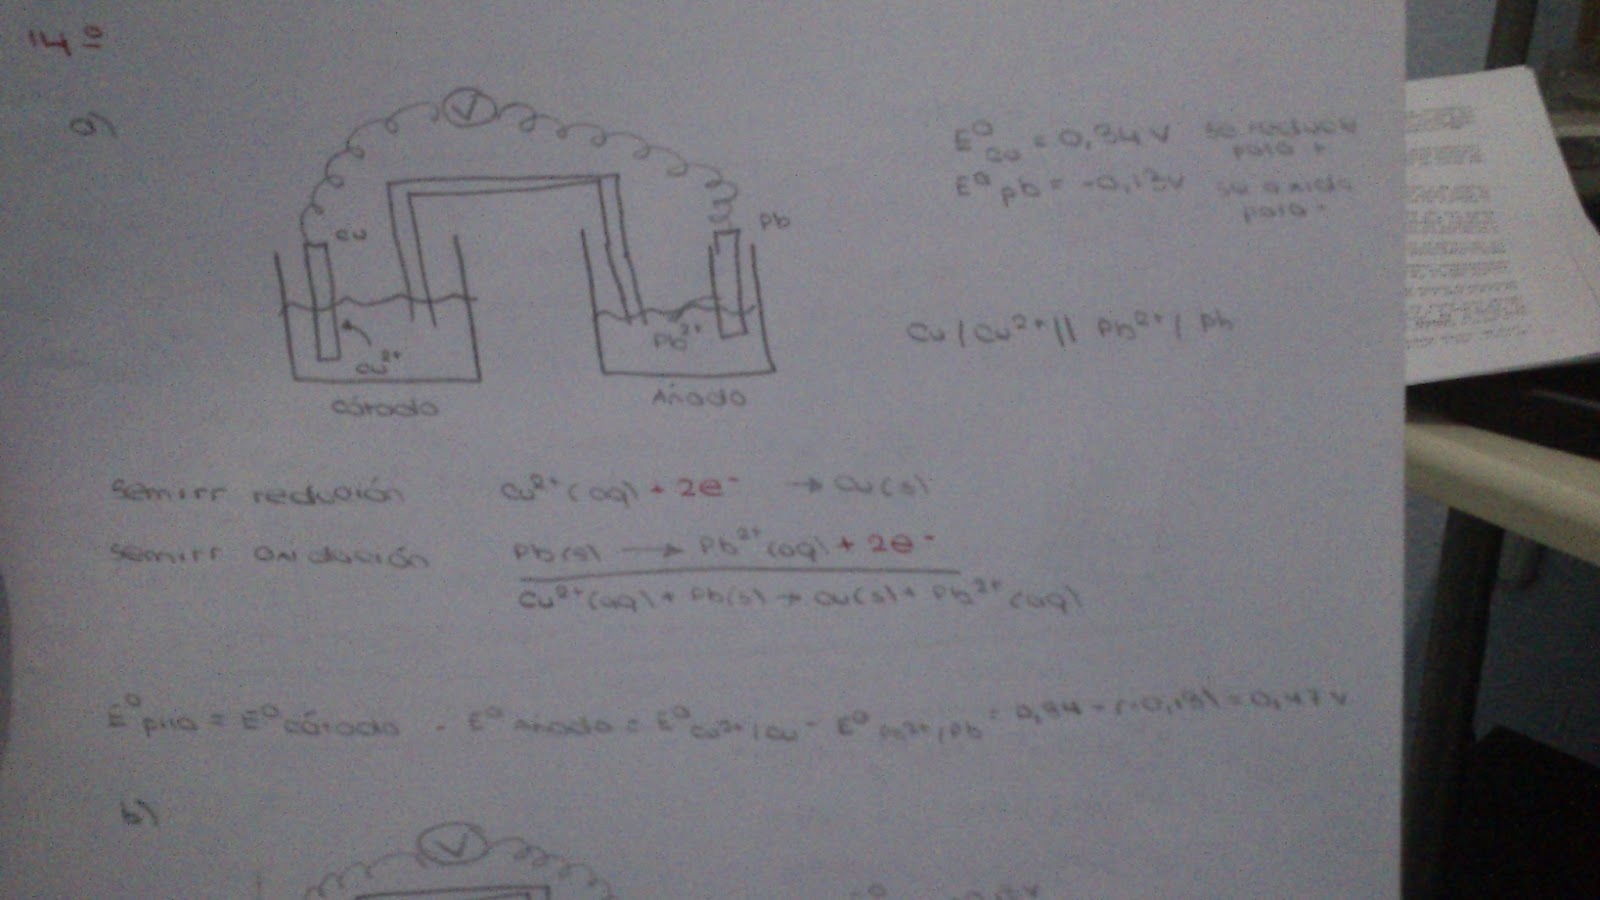 14º
a)
V
Cu
Pb
Cu²⁺
Pb²⁺
Cátodo
Ánodo
E⁰ Cu = 0,34 V se reduce
polo +
E⁰ Pb = -0,13V se oxida
polo -
Cu / Cu²⁺ // Pb²⁺ / Pb
Semirr redución Cu²⁺ (aq) + 2e⁻ → Cu (s)
Semirr oxidación Pb(s) → Pb²⁺ (aq) + 2e⁻
Cu²⁺ (aq) + Pb(s) → Cu(s) + Pb²⁺ (aq)
E⁰ pila = E⁰ cátodo - E⁰ ánodo = E⁰ Cu²⁺/Cu - E⁰ Pb²⁺/Pb = 0,34 - (-0,13) = 0,47 V
b)
V